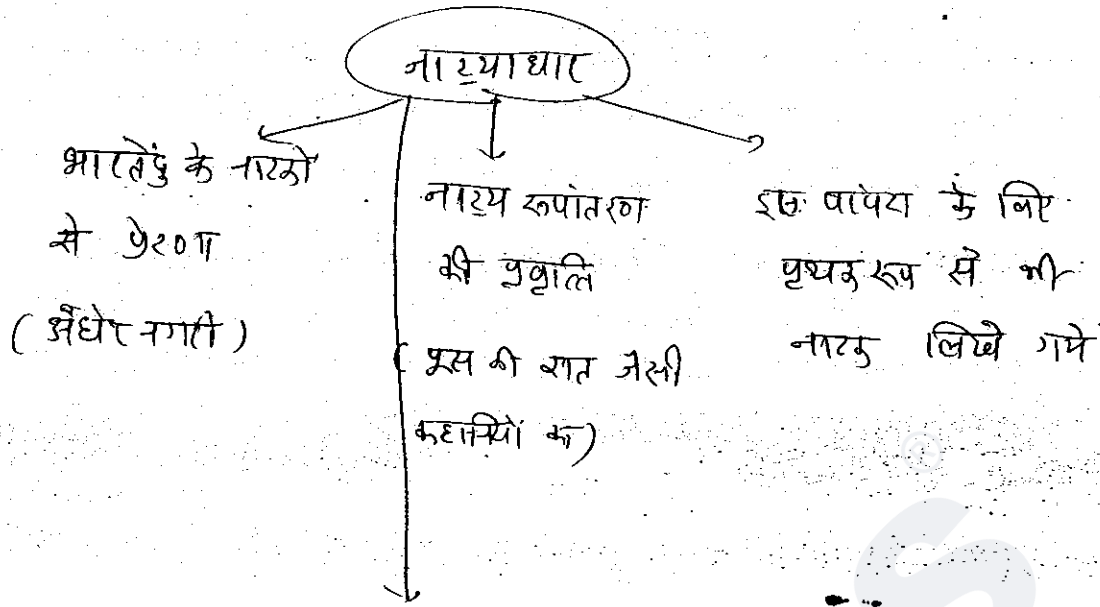 नाट्याधार
भारतेंदु के नाटकों
से प्रेरणा
(अँधेर नगरी)
नाट्य रूपांतरण
की प्रवृत्ति
(पूस की रात जैसी
कहानियों का)
के लिए
पृथक रूप से भी
नाटक लिखे गये